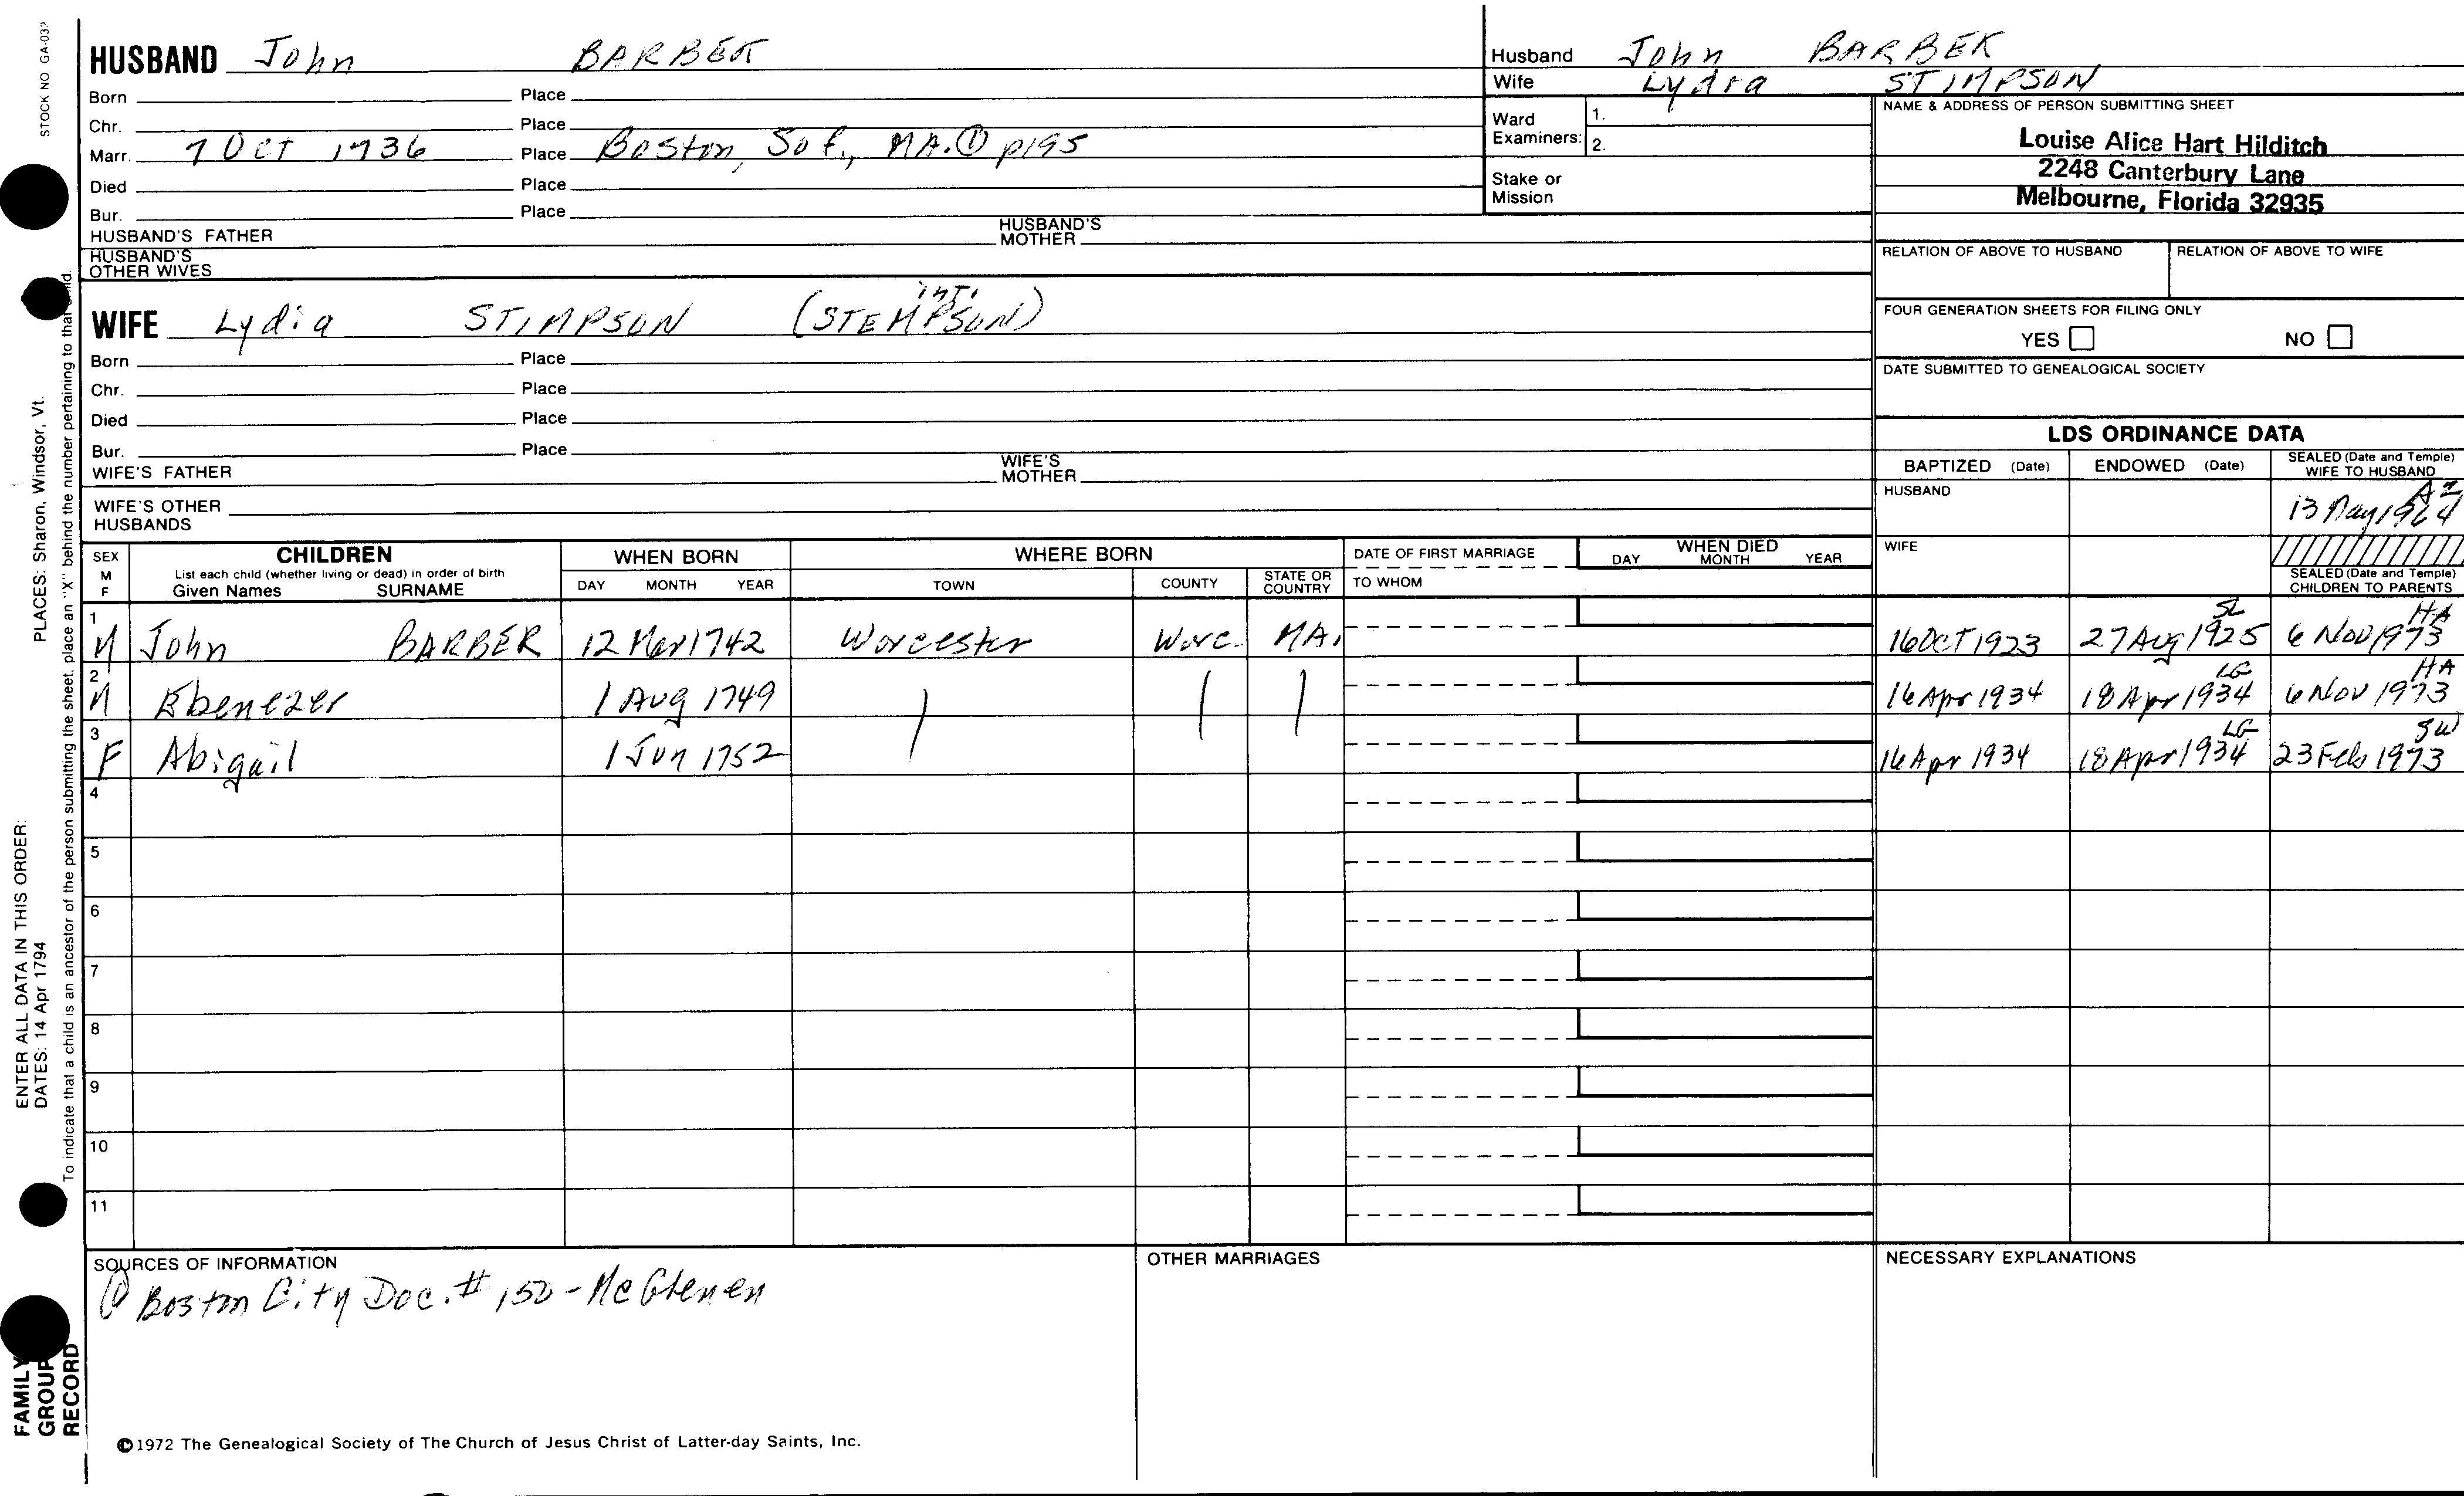 STOCK NO GA-032
HUSBAND John BARBER
Born Place
Chr. Place
Marr. 7 Oct 1736 Place Boston, Suf., MA. ① p195
Died Place
Bur. Place
HUSBAND'S FATHER HUSBAND'S MOTHER
HUSBAND'S OTHER WIVES
WIFE Lydia STIMPSON (STEMPSON) inti
Born Place
Chr. Place
Died Place
Bur. Place
WIFE'S FATHER WIFE'S MOTHER
WIFE'S OTHER HUSBANDS
Husband John BARBER
Wife Lydia STIMPSON
Ward Examiners: 1.
2.
Stake or Mission
NAME & ADDRESS OF PERSON SUBMITTING SHEET
Louise Alice Hart Hilditch
2248 Canterbury Lane
Melbourne, Florida 32935
RELATION OF ABOVE TO HUSBAND RELATION OF ABOVE TO WIFE
FOUR GENERATION SHEETS FOR FILING ONLY
YES NO
DATE SUBMITTED TO GENEALOGICAL SOCIETY
LDS ORDINANCE DATA
BAPTIZED (Date) ENDOWED (Date) SEALED (Date and Temple) WIFE TO HUSBAND
HUSBAND 13 May 1964 AZ
WIFE
SEALED (Date and Temple) CHILDREN TO PARENTS
SEX M F CHILDREN WHEN BORN WHERE BORN DATE OF FIRST MARRIAGE WHEN DIED
List each child (whether living or dead) in order of birth
Given Names SURNAME DAY MONTH YEAR TOWN COUNTY STATE OR COUNTRY TO WHOM DAY MONTH YEAR
1 M John BARBER 12 Mar 1742 Worcester Worc. MA. 16 OCT 1923 27 Aug 1925 SL 6 Nov 1973 HA
2 M Ebenezer 1 Aug 1749 16 Apr 1934 18 Apr 1934 LG 6 Nov 1973 HA
3 F Abigail 1 Jun 1752 16 Apr 1934 18 Apr 1934 LG 23 Feb 1973 SW
4
5
6
7
8
9
10
11
SOURCES OF INFORMATION
① Boston City Doc. # 150 - McGlenen
OTHER MARRIAGES
NECESSARY EXPLANATIONS
©1972 The Genealogical Society of The Church of Jesus Christ of Latter-day Saints, Inc.
FAMILY GROUP RECORD
ENTER ALL DATA IN THIS ORDER:
DATES: 14 Apr 1794 PLACES: Sharon, Windsor, Vt.
To indicate that a child is an ancestor of the person submitting the sheet, place an "X" behind the number pertaining to that child.